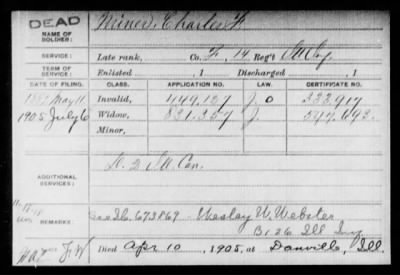 DEAD
NAME OF SOLDIER: Miner, Charles F.
SERVICE: Late rank, Co. F, 14 Reg't Ill Cav.
TERM OF SERVICE: Enlisted , 1 Discharged , 1
DATE OF FILING. CLASS. APPLICATION NO. LAW. CERTIFICATE NO.
May 11 Invalid, 449.127 J. O 333.917
1905 July 6 Widow, 831.357 J. 597.692.
Minor,
ADDITIONAL SERVICES: Ill Cav.
REMARKS: 673869 - Wesley W. Webster
B. 26 Ill Inf
Died Apr. 10, 1905, at Danville, Ill.